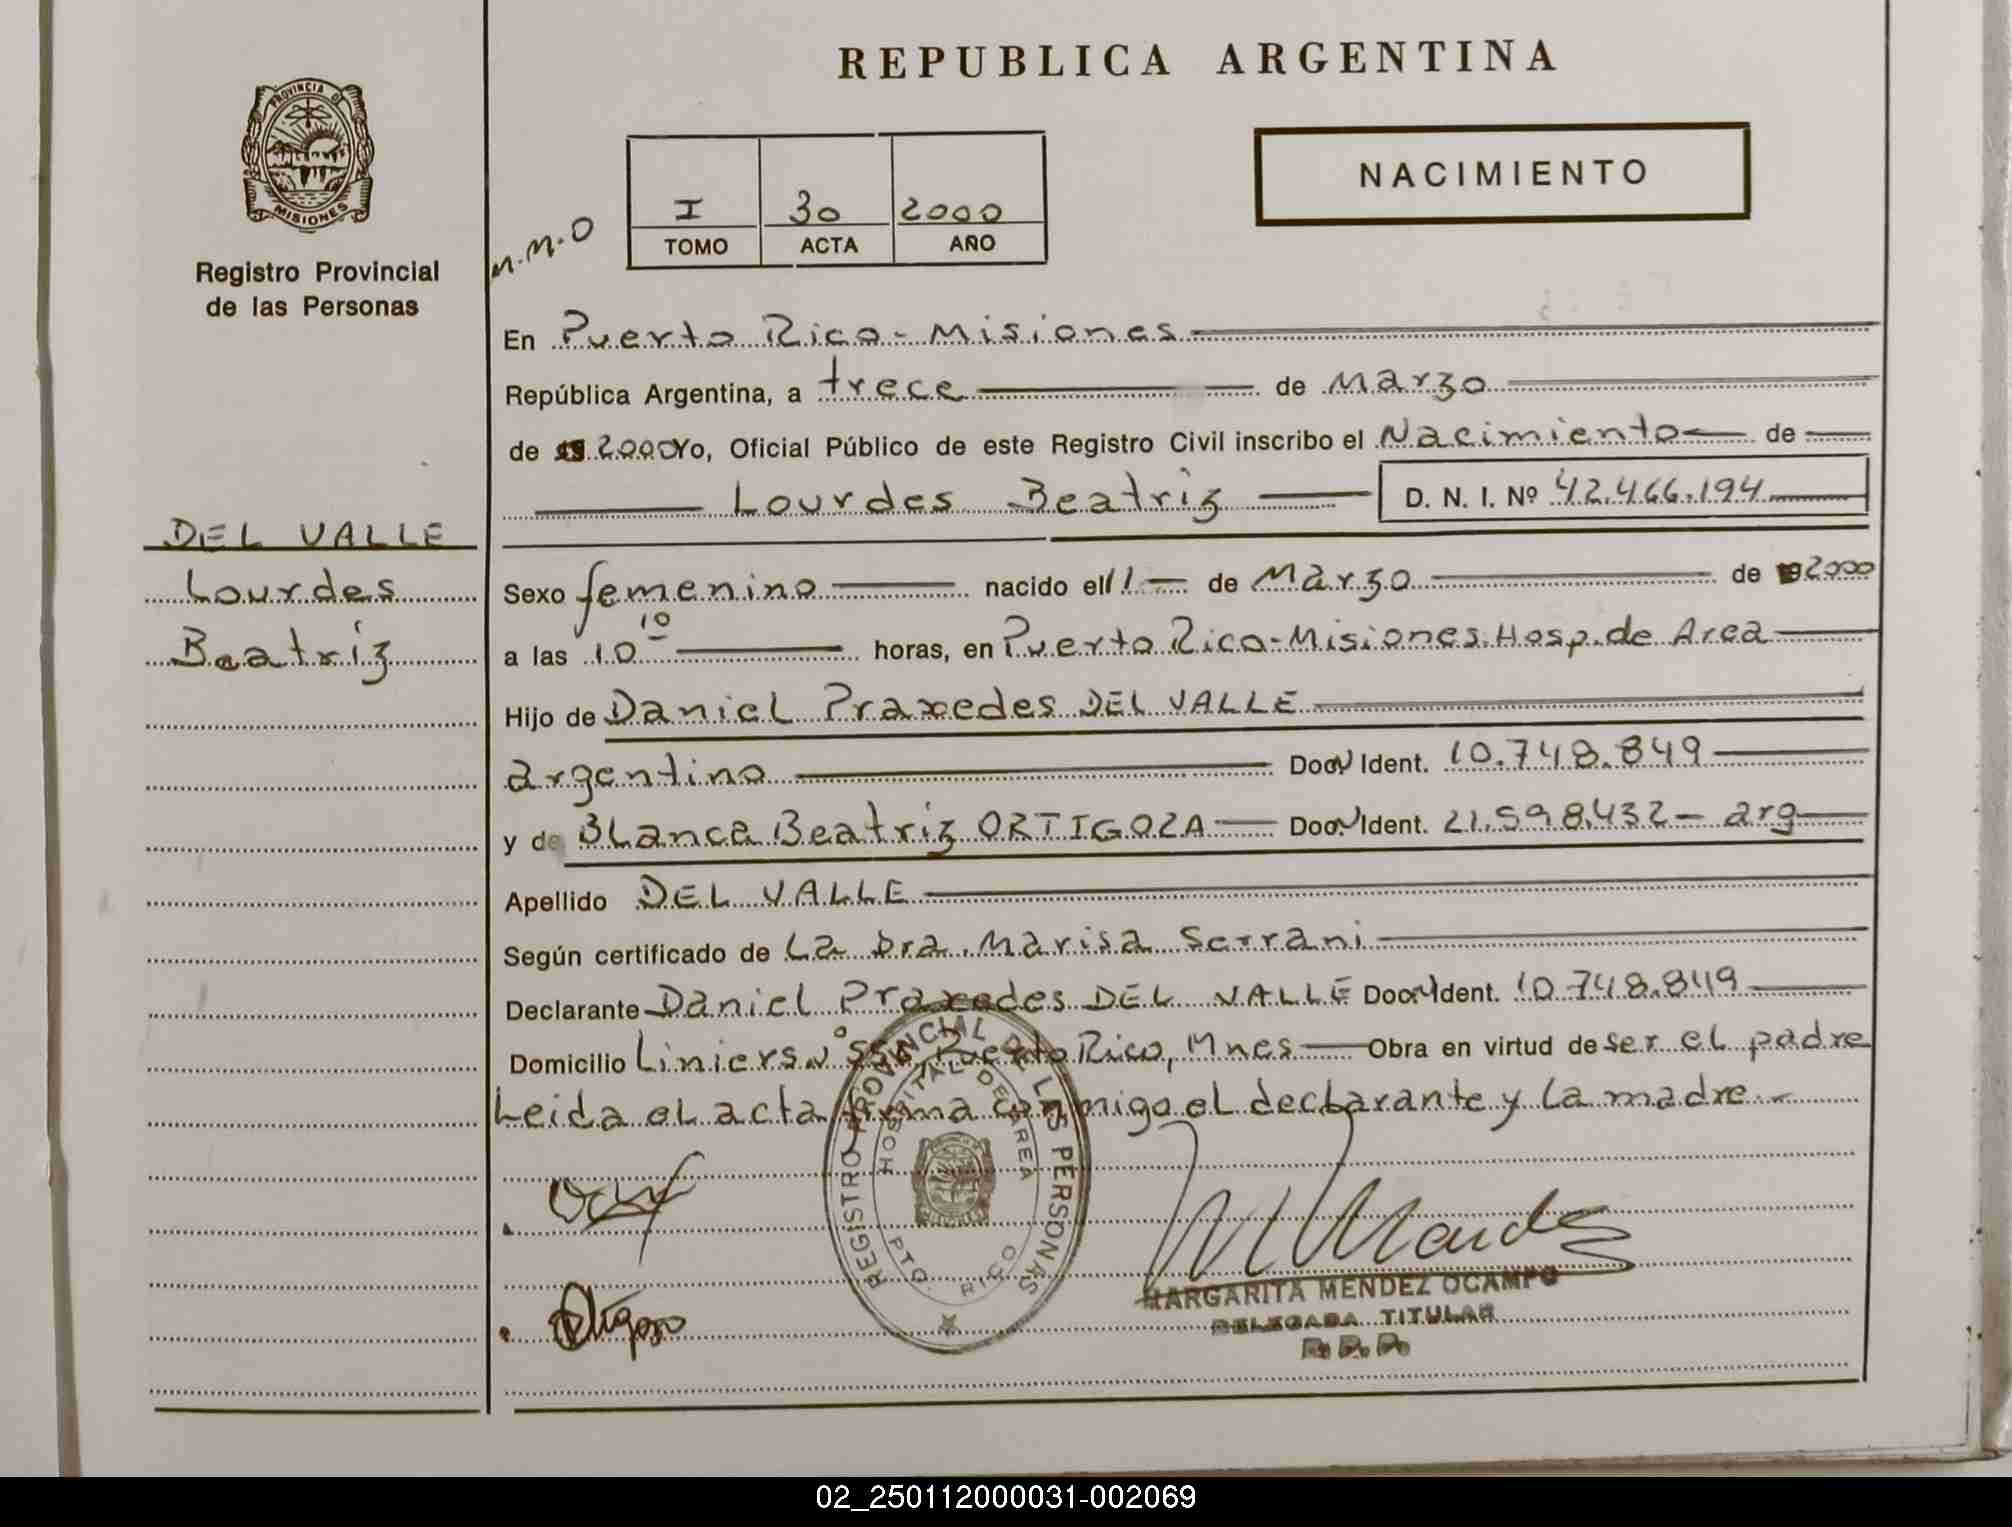 REPUBLICA ARGENTINA
PROVINCIA D
MISIONES
Registro Provincial
de las Personas
NACIMIENTO
M.M.O
I 30 2000
TOMO ACTA AÑO
En Puerto Rico - Misiones
República Argentina, a trece de Marzo
de 2000 Yo, Oficial Público de este Registro Civil inscribo el Nacimiento de
Lourdes Beatriz D. N. I. Nº 42.466.194
DEL VALLE
Lourdes
Beatriz
Sexo femenino nacido el 11 de Marzo de 2000
a las 10 10 horas, en Puerto Rico - Misiones. Hosp. de Area
Hijo de Daniel Praxedes DEL VALLE
argentino Doc. N Ident. 10.748.849
y de Blanca Beatriz ORTIGOZA Doc. N Ident. 21.598.432 - arg
Apellido DEL VALLE
Según certificado de La Dra. Marisa Serrani
Declarante Daniel Praxedes DEL VALLE Doc. N Ident. 10.748.849
Domicilio Liniers Nº Puerto Rico, Mnes Obra en virtud de ser el padre
Leida el acta firma conmigo el declarante y la madre.-
REGISTRO PROVINCIAL DE LAS PERSONAS
HOSPITAL DE AREA
PTO. RICO
MARGARITA MENDEZ OCAMPO
DELEGADA TITULAR
R.P.P.
02_250112000031-002069